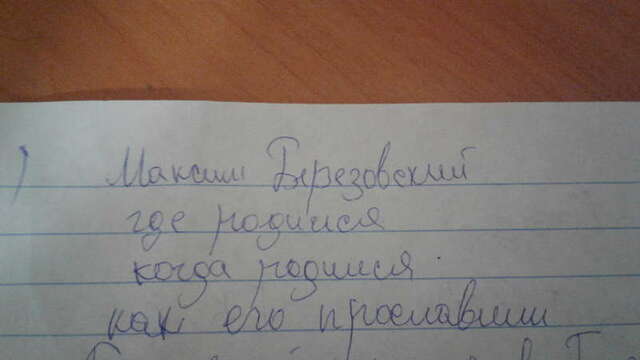 Максим Березовский
где родился
когда родился.
как его прославили